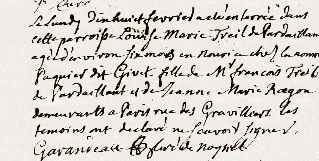 Le Lundy dixhuit fevrier a été enterrée dans
cette parroisse Louise Marie Treil de Pardaillan
agée d'environ six mois en nourice chez la nommée
Paquier dit Givet fille de Mr francois Treil
de Pardaillant et de Jeanne Marie Ragon
demeurants a Paris rue des Gravilliers les
temoins ont declaré ne scavoir signer
Garanceau curé de